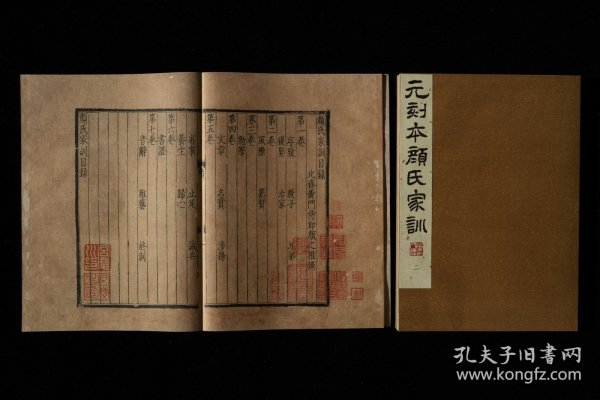 顔氏家訓目録
北齊黃門侍郎顏之推撰
第一卷
序致 教子 兄弟
後娶 治家
第二卷
風操 慕賢
第三卷
勉學
第四卷
文章 名實 涉務
第五卷
省事 止足 誡兵
養生 歸心
第六卷
書證
第七卷
音辭 雜藝 終制
顔氏家訓目録
元刻本顔氏家訓
二
孔夫子旧书网
www.kongfz.com